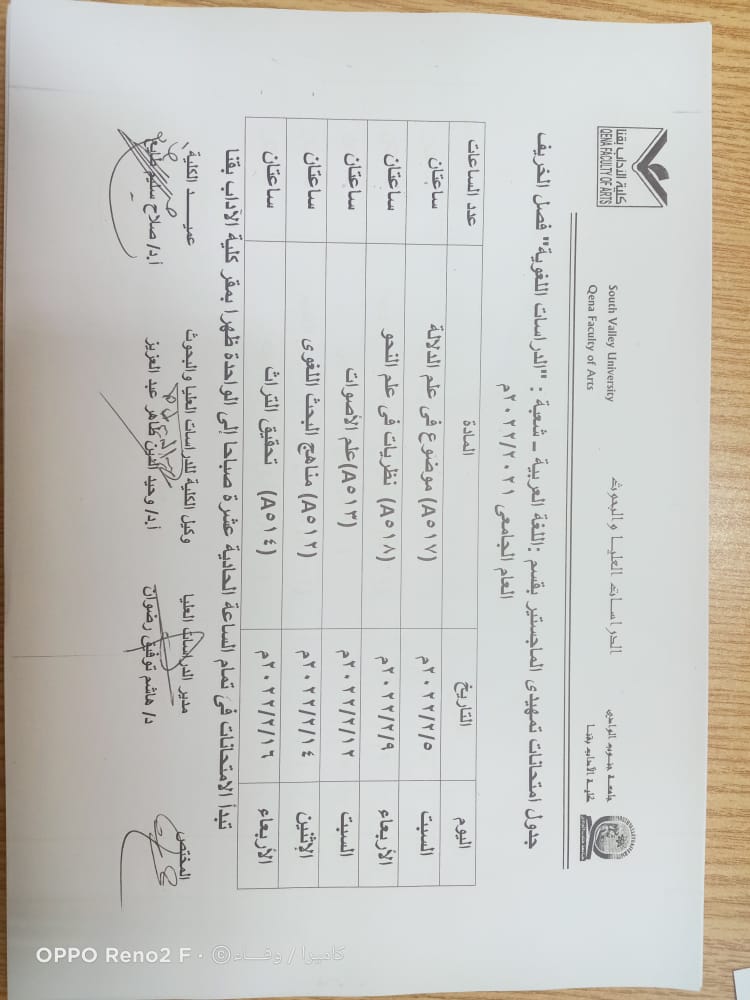 جامعة جنوب الوادى
كلية الآداب بقنا
الدراسات العليا والبحوث
South Valley University
Qena Faculty of Arts
كلية الآداب بقنا
QENA FACULTY OF ARTS
جدول امتحانات تمهيدى الماجستير بقسم :اللغة العربية - شعبة : "الدراسات اللغوية" فصل الخريف
العام الجامعى ٢٠٢٢/٢٠٢١م
اليوم التاريخ المادة عدد الساعات
السبت ٢٠٢٢/٢/٥م موضوع فى علم الدلالة (A٥١٧) ساعتان
الأربعاء ٢٠٢٢/٢/٩م نظريات فى علم النحو (A٥١٨) ساعتان
السبت ٢٠٢٢/٢/١٢م علم الأصوات(A٥١٣) ساعتان
الإثنين ٢٠٢٢/٢/١٤م مناهج البحث اللغوى (A٥١٢) ساعتان
الأربعاء ٢٠٢٢/٢/١٦م تحقيق التراث (A٥١٤) ساعتان
تبدأ الامتحانات فى تمام الساعة الحادية عشرة صباحا إلى الواحدة ظهرا بمقر كلية الآداب بقنا
المختص مدير الدراسات العليا وكيل الكلية للدراسات العليا والبحوث عميد الكلية
د/ هاشم توفيق رضوان أ.د/ وحيد الدين طاهر عبد العزيز أ.د/ صلاح سليم طايع
OPPO Reno2 F · ©كاميرا / وفاء